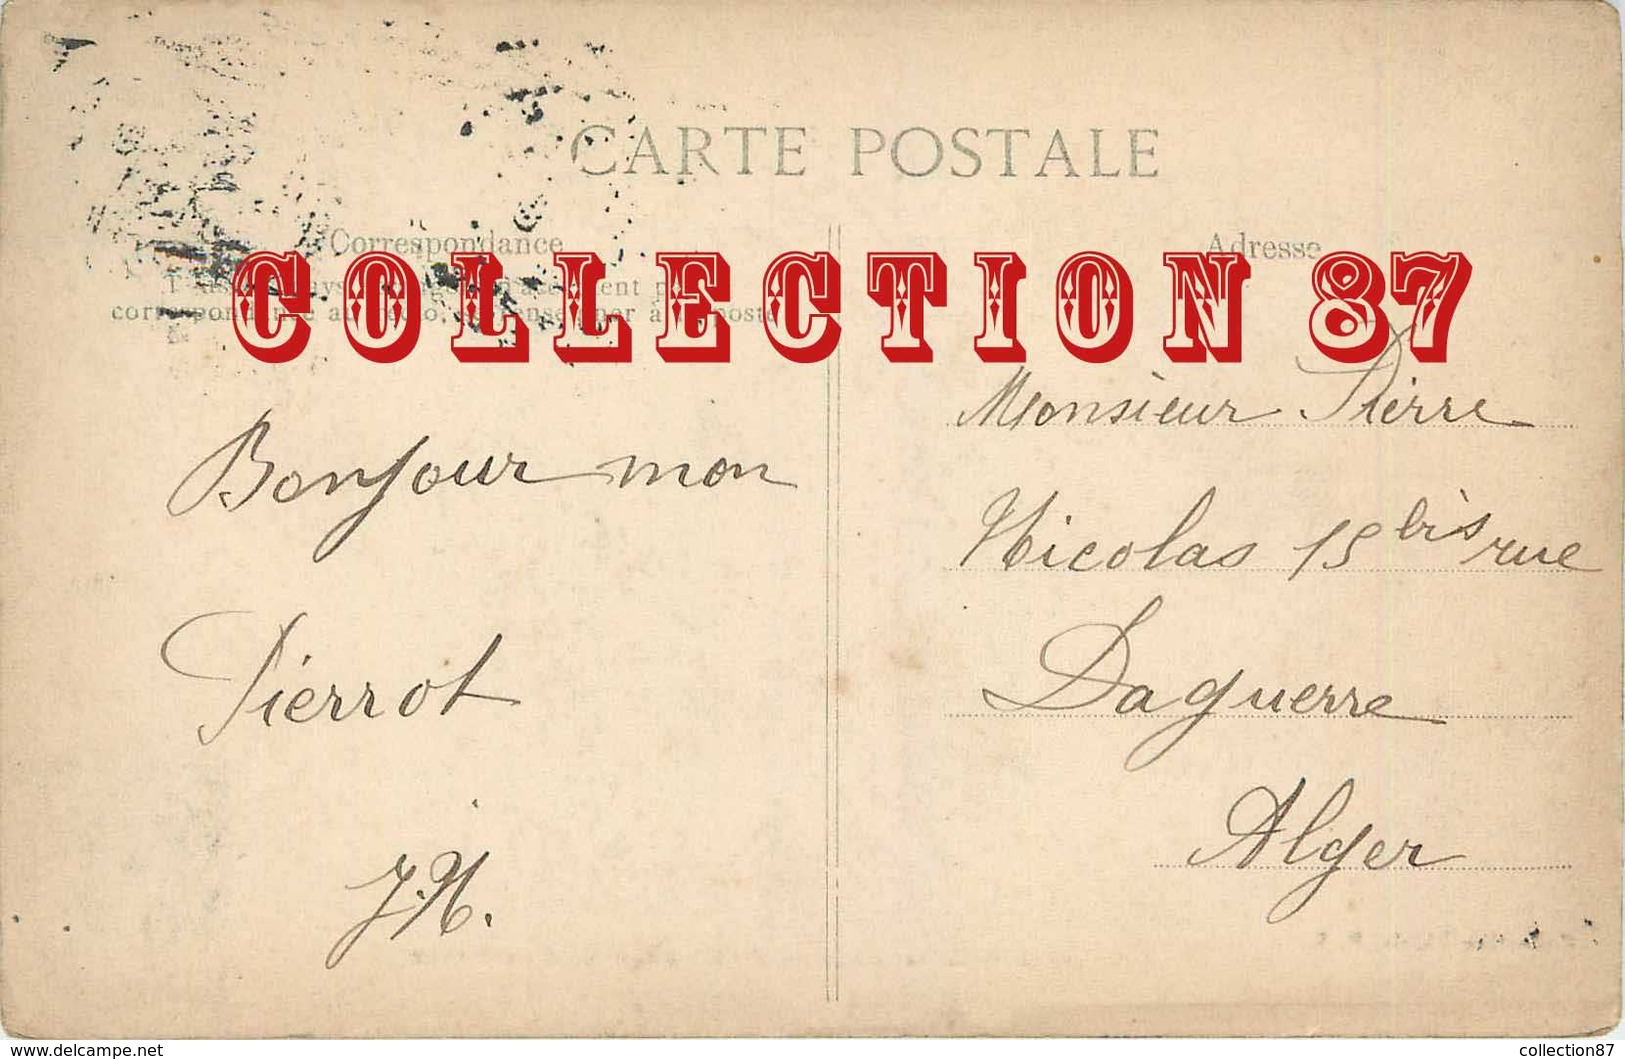 CARTE POSTALE
Correspondance
Adresse
COLLECTION 87
Bonjour mon
Pierrot
J. N.
Monsieur Pierre
Nicolas 15 bis rue
Daguerre
Alger
www.delcampe.net
collection87